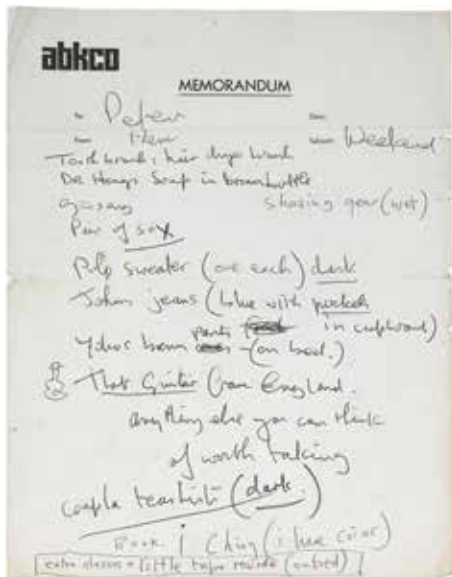 abkco
MEMORANDUM
To Peter
From Date
Subject Weekend
Toothbrush, hair dryer brush
Dr Soap in brown bottle
shaving gear (wet)
Pair of sox
Polo sweater (one each) dark
Johns jeans (blue with pockets
in cupboard)
Yokos brown pants (on bed.)
That Guitar from England.
anything else you can think
of worth taking
coupla teashirts (dark.)
Book I Ching (i hue coins)
extra glasses + little tape